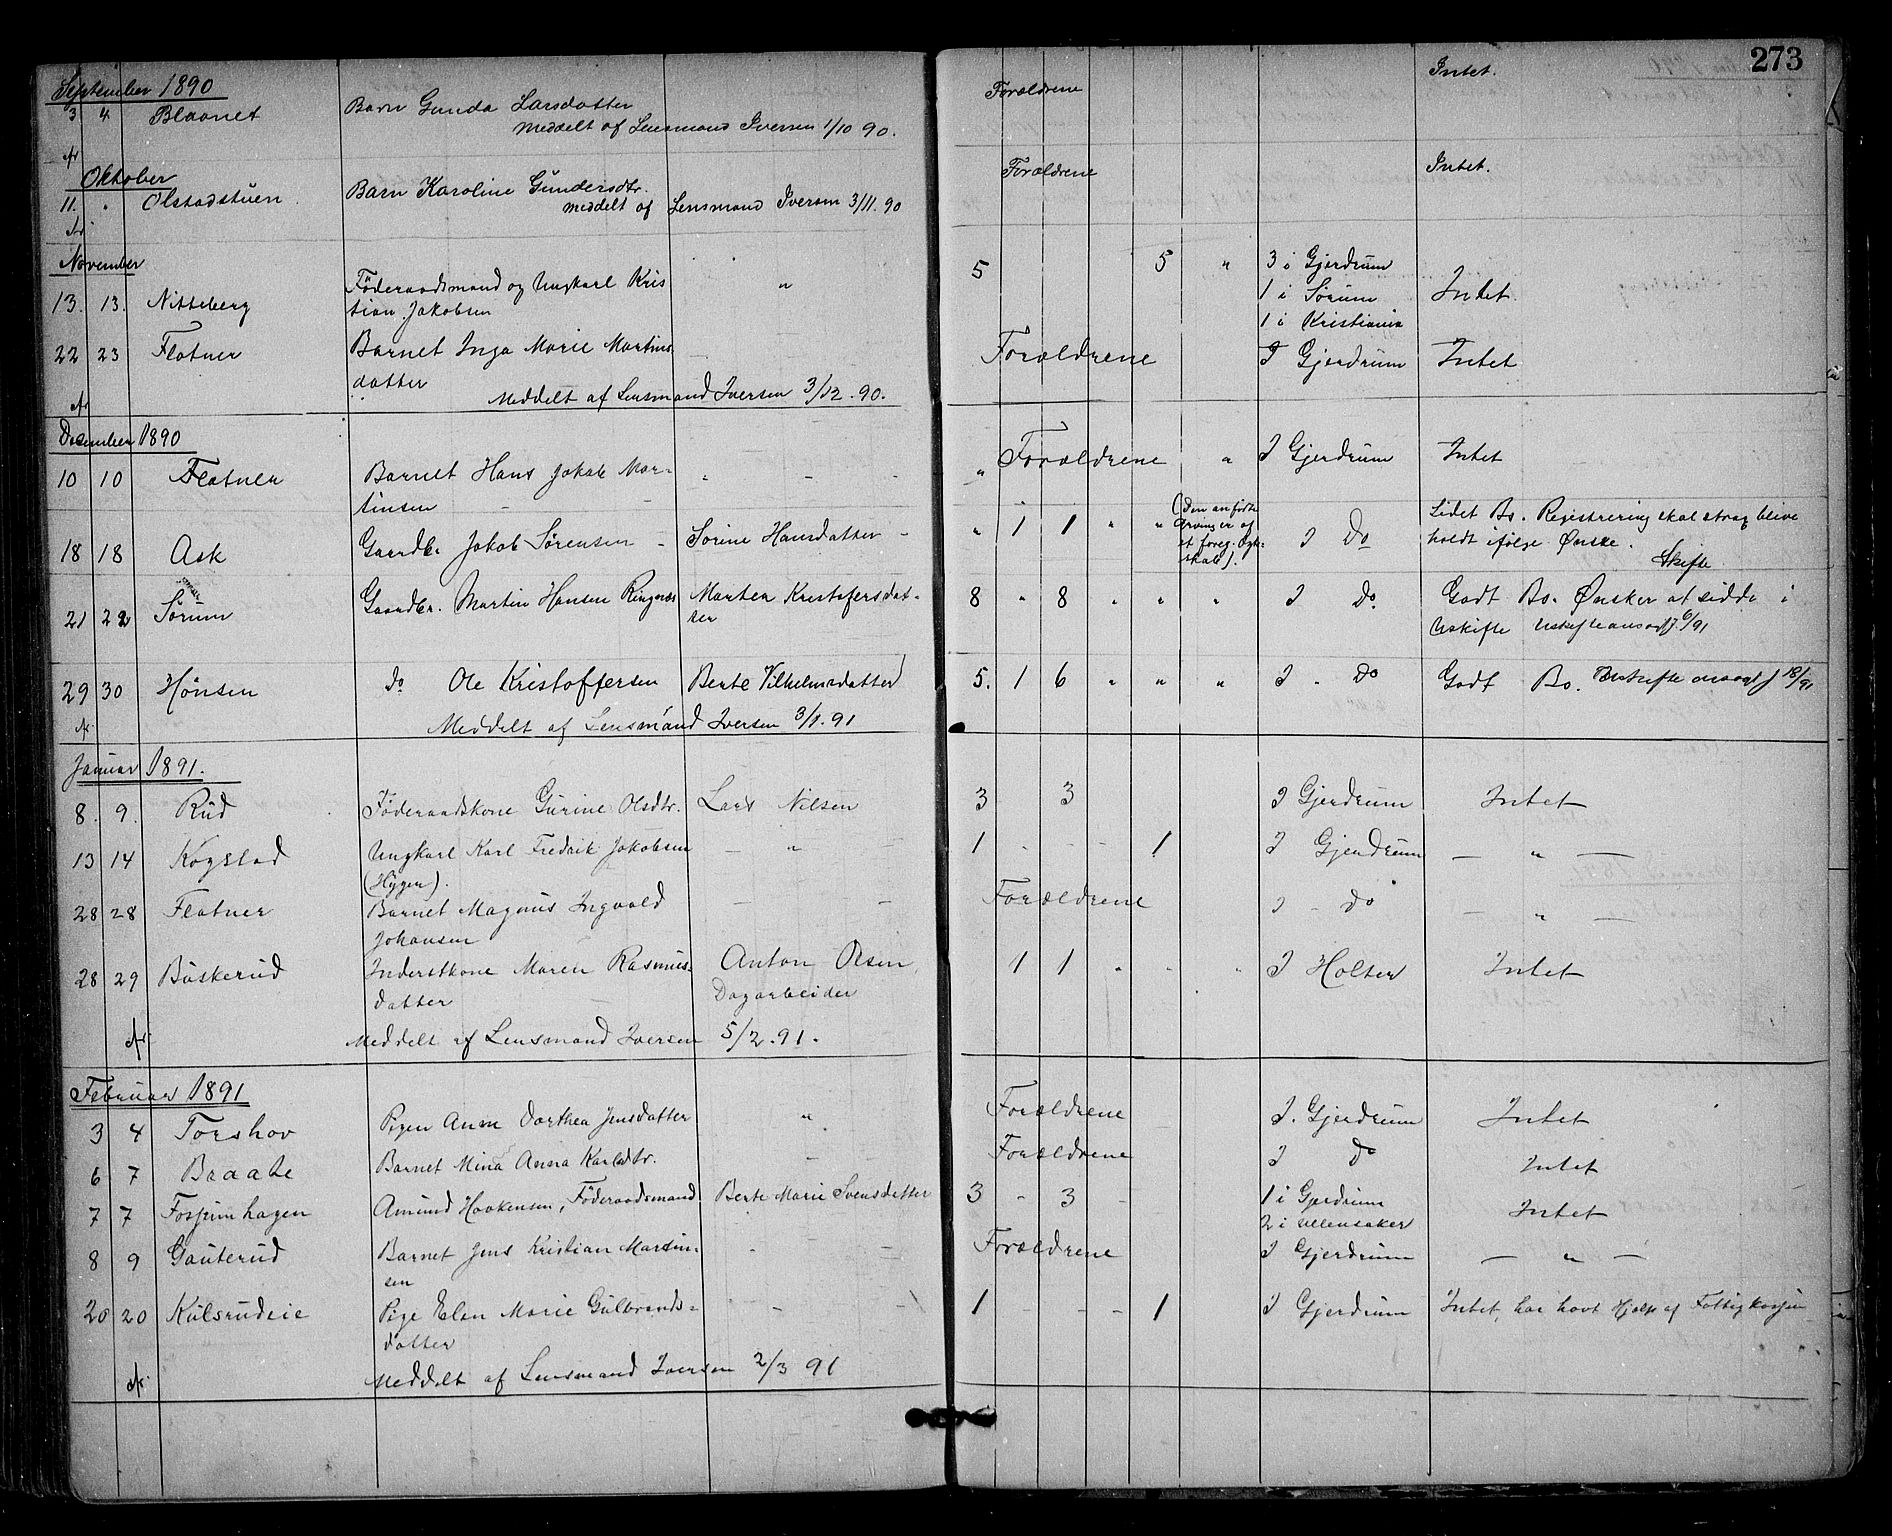 273
September 1890
Forældrene Intet.
3 4 Blaanet Barn Gunda Larsdatter
Meddelt af Lensmand Iversen 1/10 90.
Oktober
Forældrene Intet.
11. " Olstadstuen Barn Karoline Gundersdtr.
meddelt af Lensmand Iversen 3/11. 90
November
5 5 " 3 i Gjerdrum
13. 13. Nitteberg Föderaadsmand og Ungkarl Kris " 1 i Sørum Intet
tian Jakobsen 1 i Kristiania
22 23 Flatner Barnet Inga Marie Martins Forældrene I Gjerdrum Intet
datter
Meddelt af Lensmand Iversen 3/12. 90.
December 1890
10 10 Flatner Barnet Hans Jakob Mar= " - - " Forældrene " I Gjerdrum Intet
tinsen -
18 18 Ask Gaardbr. Jakob Sørensen - Sørine Hansdatter - " 1 1 " " (Den anførte I Do Lidet Bo. Registrering skal strax blive
Arving er af holdt ifølge Ønske.
et foreg. Ægte-
skab). Skifte
21 22 Sørum Gaardbr. Martin Hansen Ringnæs Marthea Kristofersdat- 8 " 8 " " " I Do Godt Bo. Ønsker at sidde i
ter Uskifte
29 30 Hønsen do Ole Kristoffersen Berte Vilhelmsdatter 5. 1 6 " " " I - Do Godt Bo.
Meddelt af Lensmand Iversen 3/1. 91
Januar 1891.
8. 9. Rud Føderaadskone Gurine Olsdtr. Lars Nilsen 3 3 I Gjerdrum Intet
13 14 Kogstad Ungkarl Karl Fredrik Jakobsen — " — 1 - - - 1 I Gjerdrum — " —
(Hygen).
28 28 Flatner Barnet Magnus Ingvald — — Forældrene I - Do — " —
Johansen
28 29 Buskerud Inderstkone Maren Rasmus- Anton Olsen 1 1 " " " I Holter Intet
datter Dagarbeider
Meddelt af Lensmand Iversen 5/2. 91.
Februar 1891
3 4 Torshov Pigen Anne Dorthea Jensdatter " Forældrene I. Gjerdrum Intet
6 7 Braate Barnet Mina Anna Karlsdtr. - - Forældrene I Do Intet
7 7 Amund Haakensen, Føderaadsmand Berte Marie Svensdatter 3 - 3 - 1 i Gjerdrum Intet
2 i Ullensaker
8 9 Gauterud Barnet Jens Kristian Martin- - — Forældrene I Gjerdrum — " —
sen
20 20 Kulsrudeie Pige Elen Marie Gulbrands= - - 1 - - 1 I Gjerdrum Intet, har havt Hjælp af Fattigkassen
datter
Meddelt af Lensmand Iversen 2/3 91